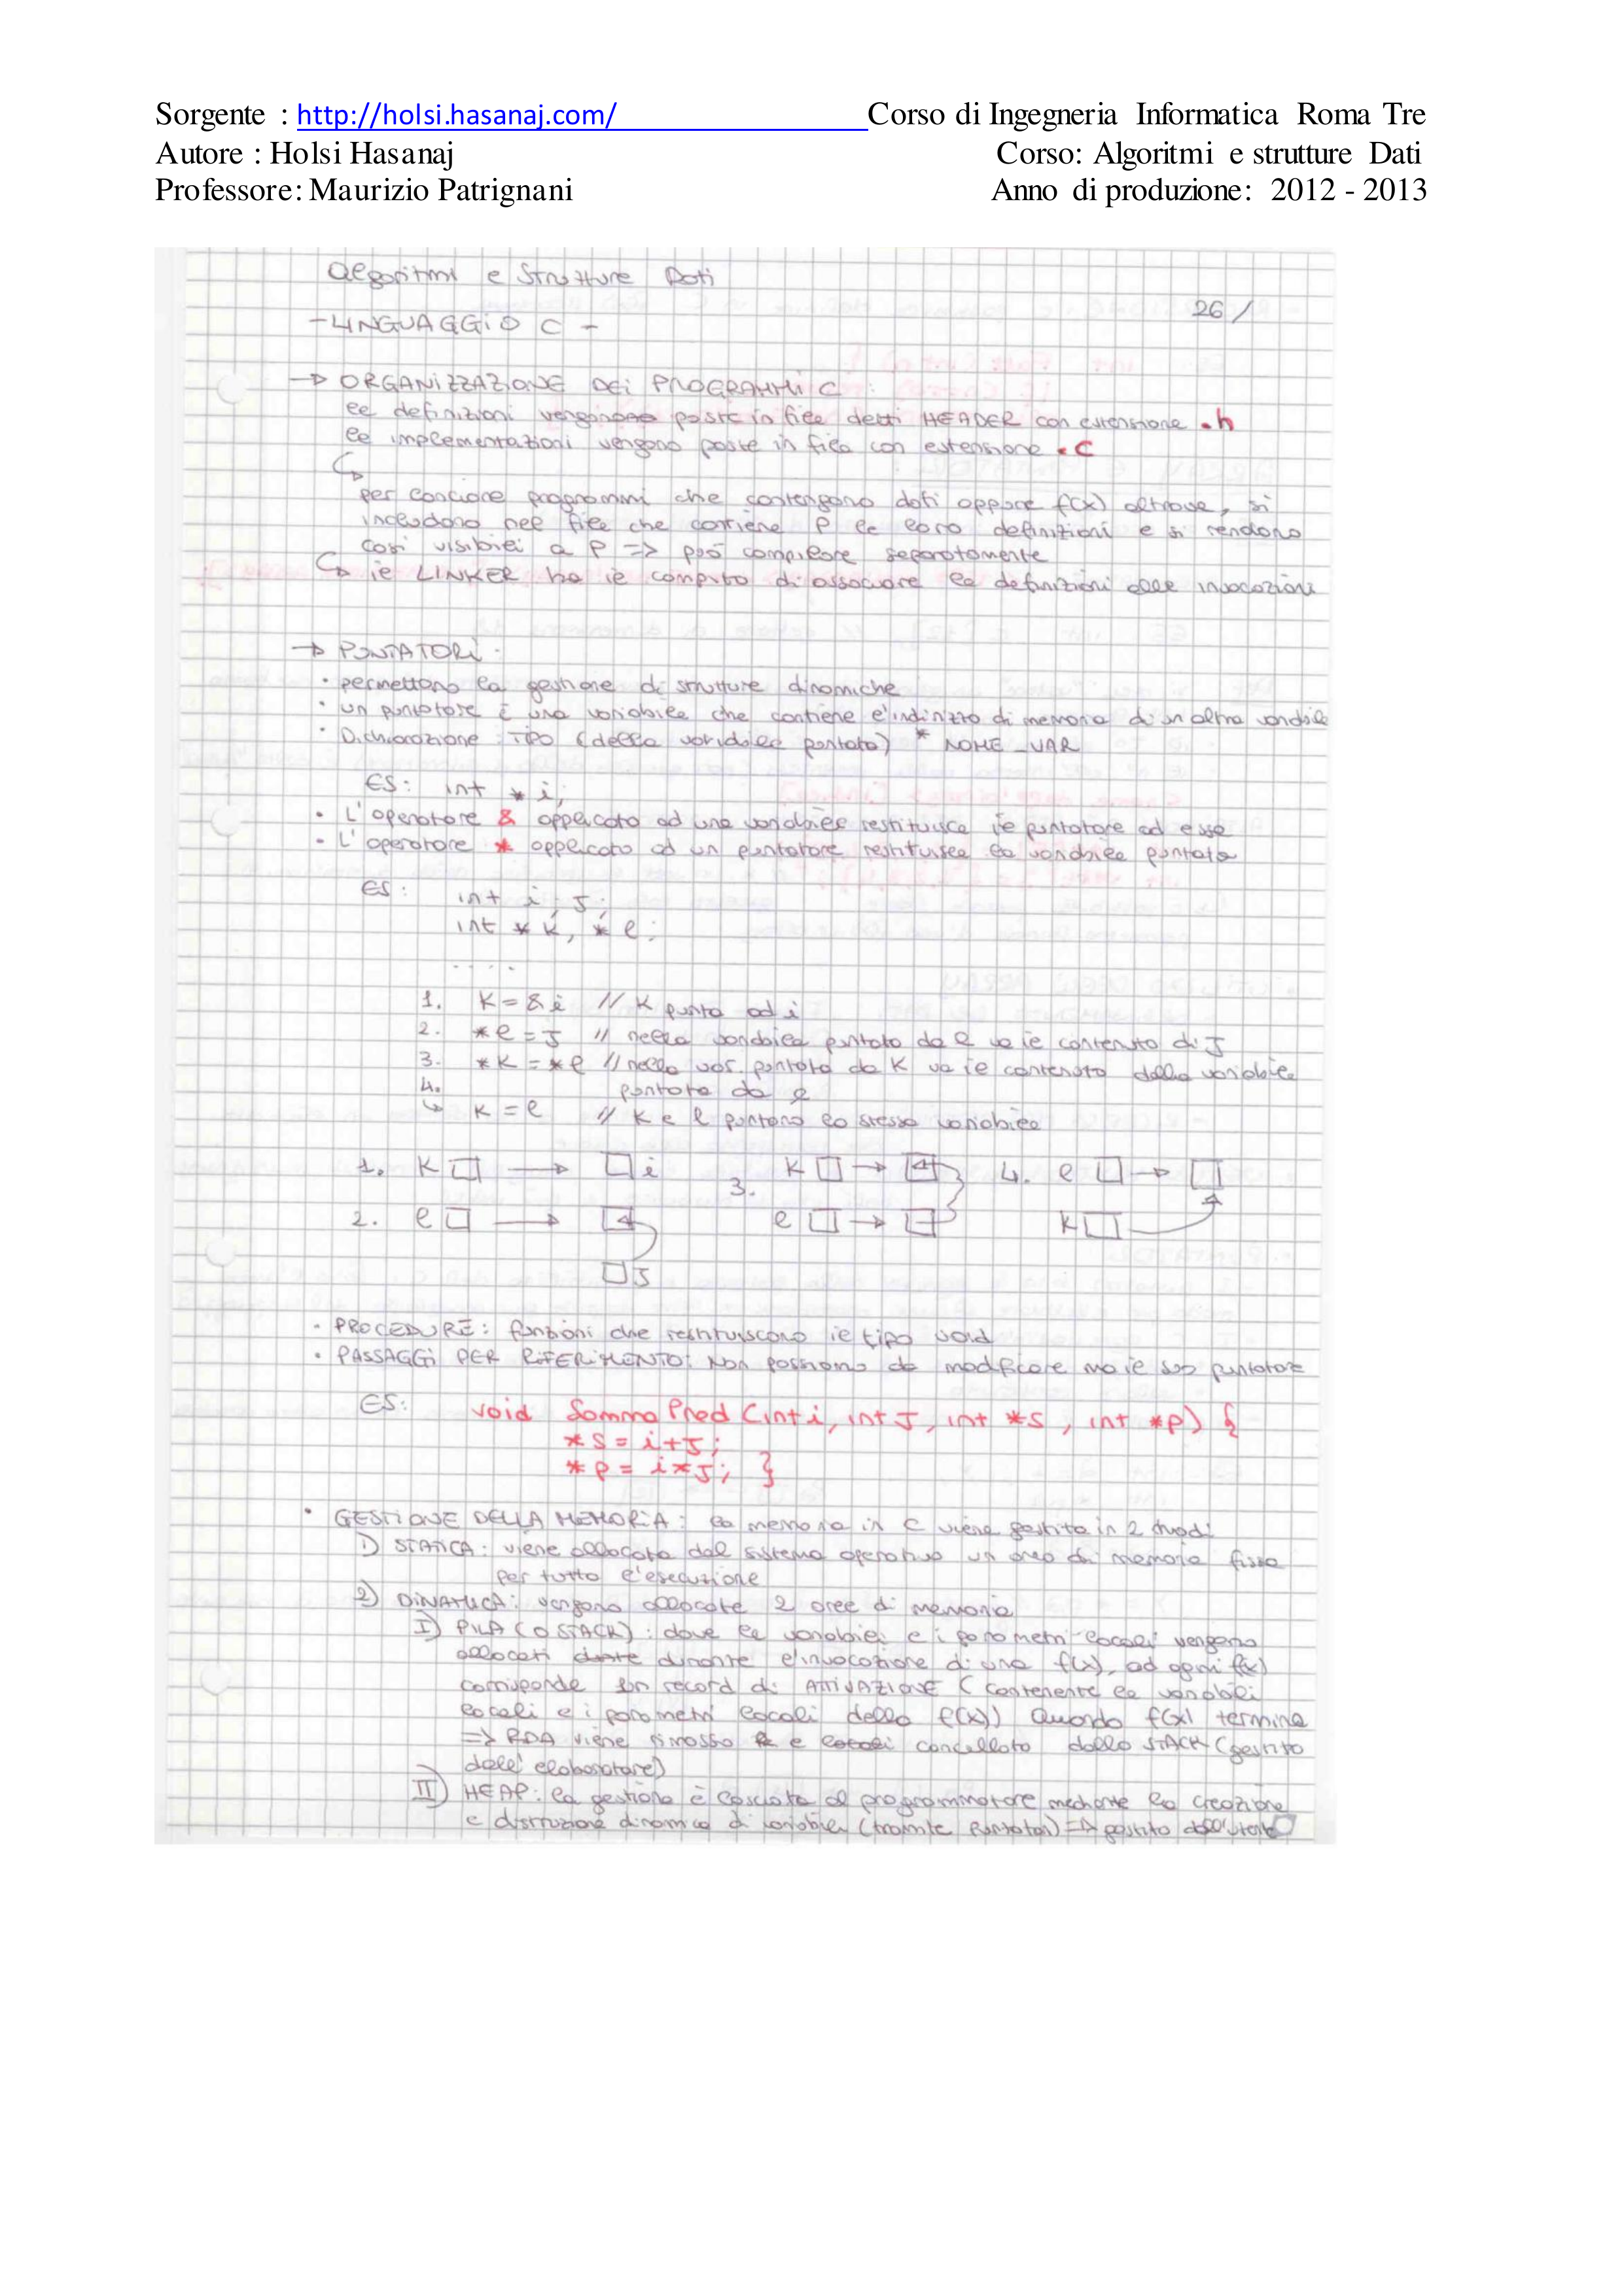 Sorgente : http://holsi.hasanaj.com/ Corso di Ingegneria Informatica Roma Tre
Autore : Holsi Hasanaj Corso: Algoritmi e strutture Dati
Professore: Maurizio Patrignani Anno di produzione: 2012 - 2013
Algoritmi e Strutture Dati
26/
- LINGUAGGIO C -
→ ORGANIZZAZIONE DEI PROGRAMMI C :
le definizioni vengono poste in file detti HEADER con estensione .h
le implementazioni vengono poste in file con estensione .c
per conciare programmi che contengono dati oppure f(x) altrove, si
includono nel file che contiene P le loro definizioni e si rendono
così visibili a P => può compilare separatamente
il LINKER ha il compito di associare le definizioni alle invocazioni
→ PUNTATORI.
• permettono la gestione di strutture dinamiche
• un puntatore è una variabile che contiene l'indirizzo di memoria di un altra variabile
• Dichiarazione : TIPO (della variabile puntata) * NOME_VAR
ES: int *i;
• L'operatore & applicato ad una variabile restituisce il puntatore ad esse
• L'operatore * applicato ad un puntatore restituisce la variabile puntata
ES: int i, J;
int *k, *l;
.....
1. K=&i // K punta ad i
2. *l=J // nella variabile puntata da l va il contenuto di J
3. *K=*l // nella var. puntata da K va il contenuto della variabile
4. puntata da l
↳ K=l // K e l puntano la stessa variabile
1. K → i 3. K → 4. l →
2. l → l → K
J
• PROCEDURE: funzioni che restituiscono il tipo void
• PASSAGGI PER RIFERIMENTO: Non passiamo da modificare ma il suo puntatore
ES: void SommaPred (int i, int J, int *s, int *p) {
*s = i+J;
*p = i*J; }
• GESTIONE DELLA MEMORIA: la memoria in C viene gestita in 2 modi
1) STATICA: viene allocata dal sistema operativo un area di memoria fissa
per tutta l'esecuzione
2) DINAMICA: vengono allocate 2 aree di memoria
I) PILA (O STACK): dove le variabili e i parametri locali vengono
allocati durante l'invocazione di una f(x), ad ogni f(x)
corrisponde un record di ATTIVAZIONE (contenente le variabili
locali e i parametri locali della f(x)) Quando f(x) termina
=> RDA viene rimosso e cancellato dallo STACK (gestito
dall'elaboratore)
II) HEAP: la gestione è lasciata al programmatore mediante la creazione
e distruzione dinamica di variabili (tramite puntatori) => gestito dall'utente